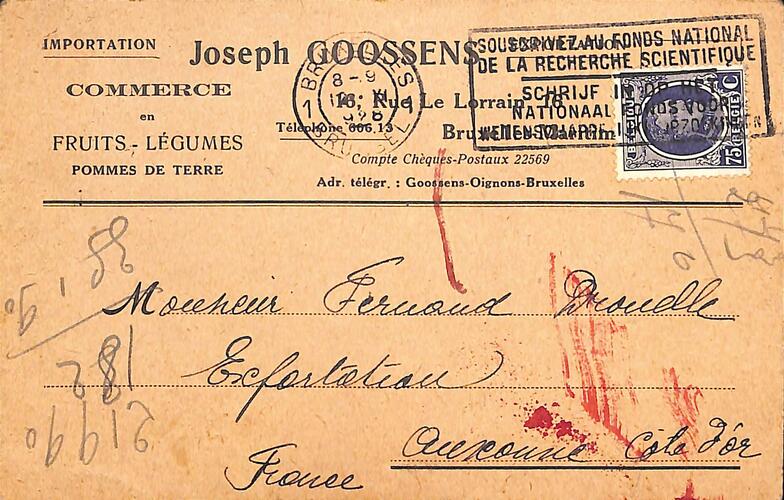 IMPORTATION
Joseph GOOSSENS
EXPORTATION
COMMERCE
en
FRUITS - LÉGUMES
POMMES DE TERRE
16, Rue Le Lorrain, 16
Téléphone 606,13
Bruxelles-Maritime
Compte Chèques-Postaux 22569
Adr. télégr. : Goossens-Oignons-Bruxelles
1928
8-9
SOUSCRIVEZ AU FONDS NATIONAL
DE LA RECHERCHE SCIENTIFIQUE
SCHRIJF IN OP HET
NATIONAAL FONDS VOOR
75 C
Monsieur Fernand Drouelle
Exportation
Auxonne Côte d'Or
France
182
21990